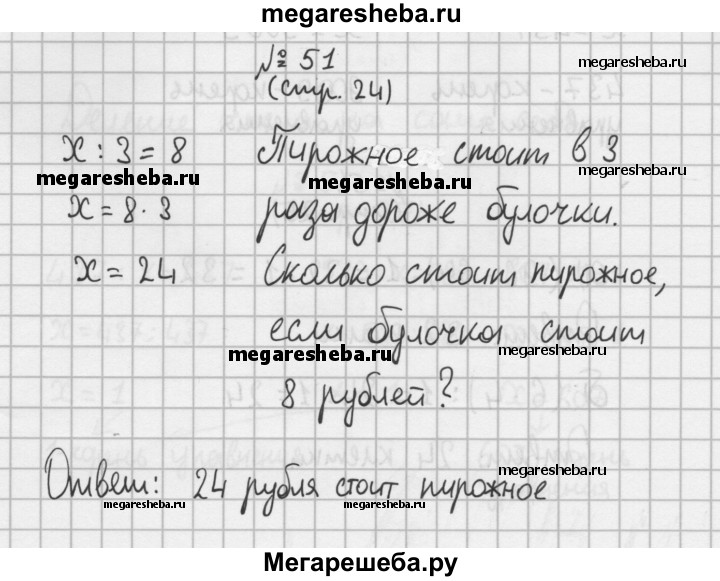 megaresheba.ru
№ 51
(стр. 24)
megaresheba.ru
x : 3 = 8 Пирожное стоит в 3
megaresheba.ru megaresheba.ru megaresheba.ru
x = 8 · 3 раза дороже булочки.
megaresheba.ru
x = 24 Сколько стоит пирожное,
если булочка стоит
megaresheba.ru megaresheba.ru
8 рублей?
megaresheba.ru
Ответ: 24 рубля стоит пирожное
megaresheba.ru megaresheba.ru
Мегарешеба.ру